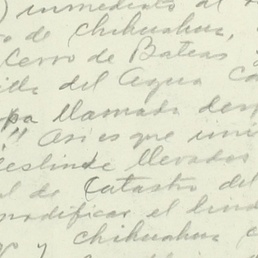 ) inmediato al
o de Chihuahua,
Cerro de Bateas y
illa del Agua Ca
pa llamada desp
!! Asi es que uni
deslinde llevados
al de Catastro del
modificar el lind
go y Chihuahua c